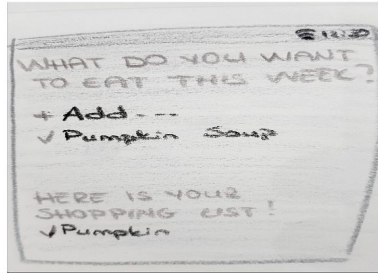 12:30
WHAT DO YOU WANT
TO EAT THIS WEEK?
+ Add ---
✓ Pumpkin Soup
HERE IS YOUR
SHOPPING LIST!
✓ Pumpkin